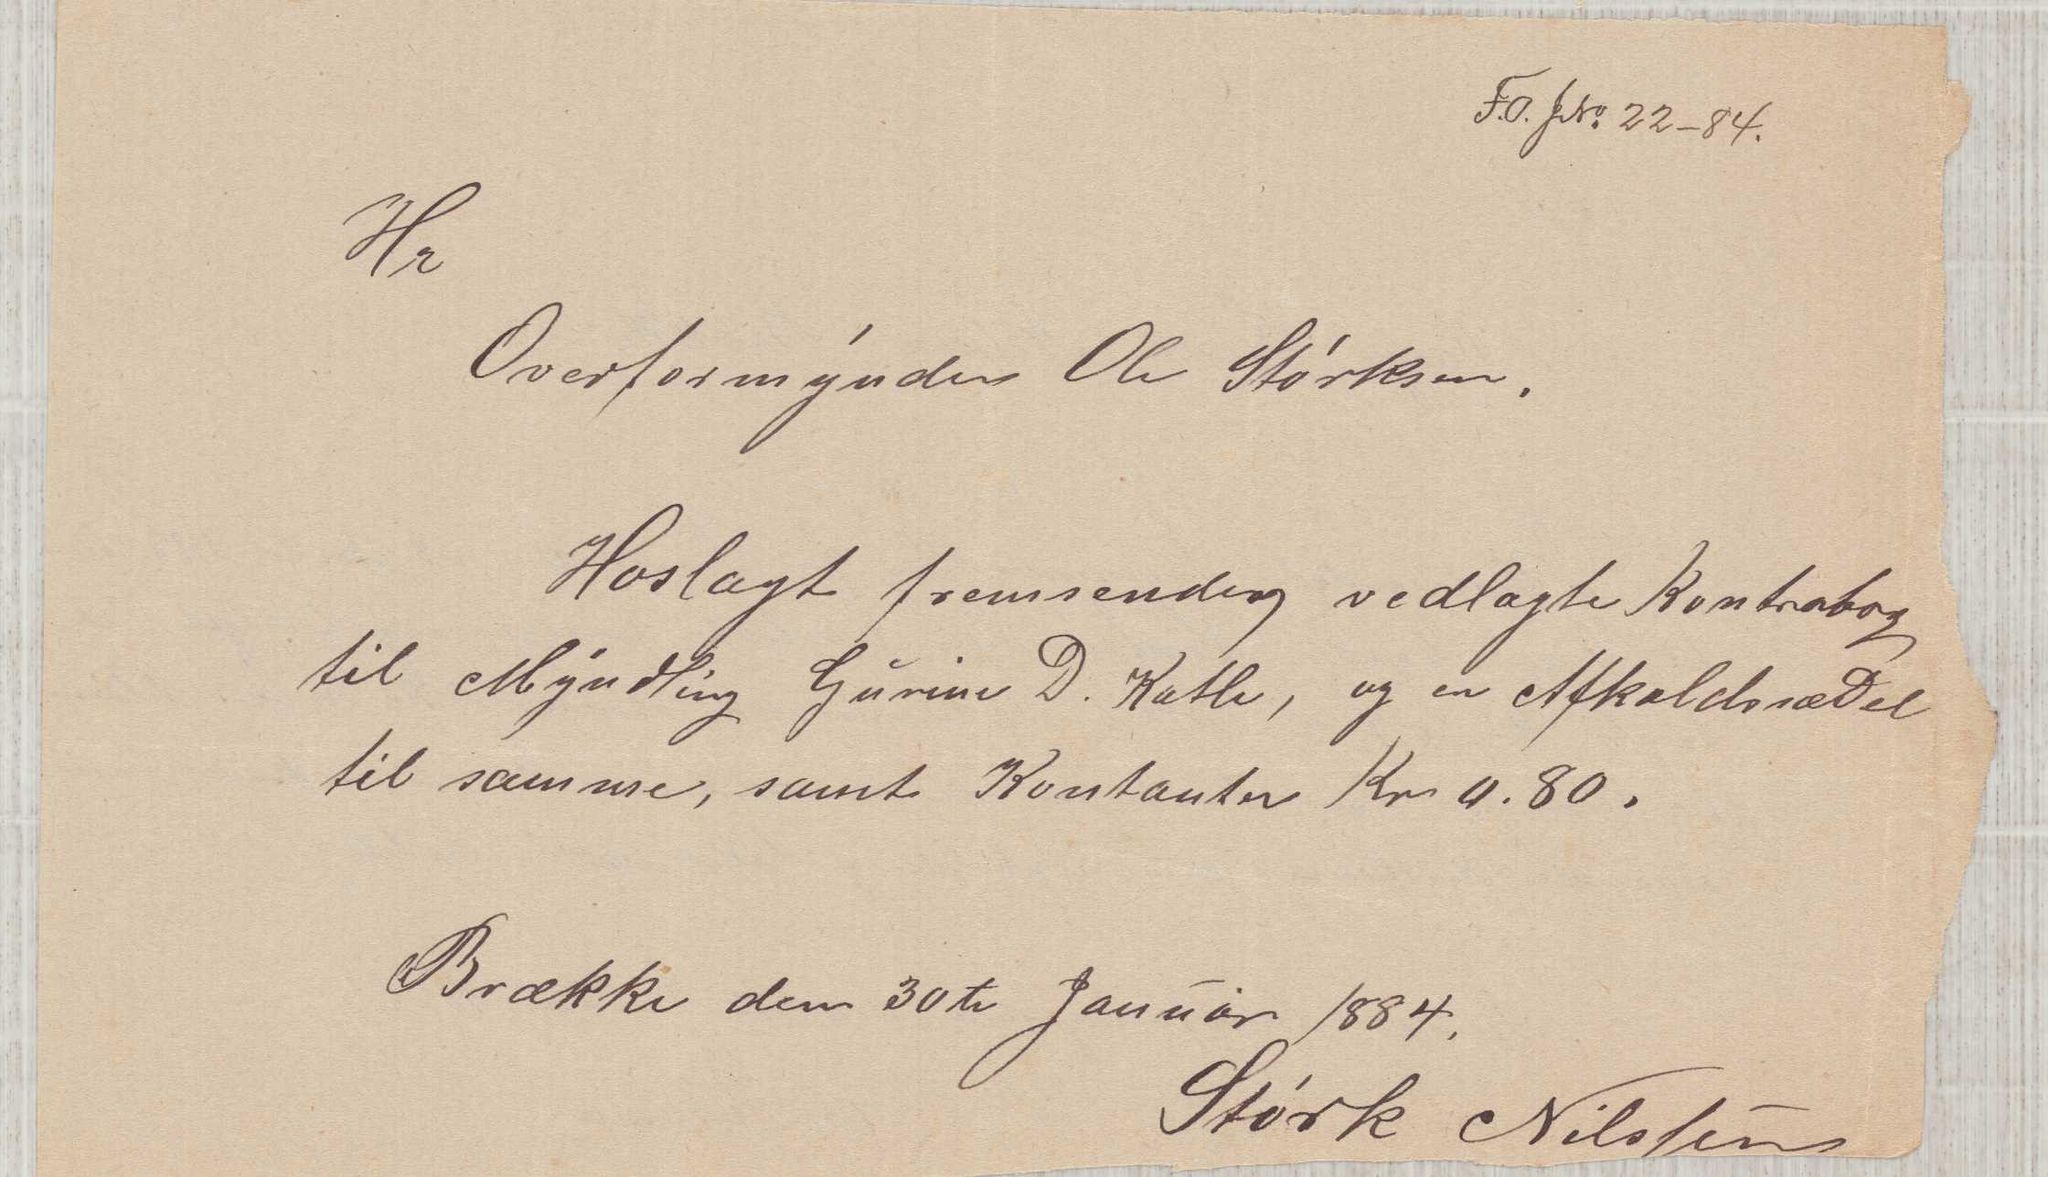 F.O. J№. 22-84.
Hr
Overformynder Ole Størksen.
Hoslagt fremsendes vedlagte Kontrabog
til Myndling Gurine D. Katle, og en Afkaldssædel
til samme, samt Kontanter Kr 0.80.
Brække den 30te Januar 1884.
Størk Nilssen